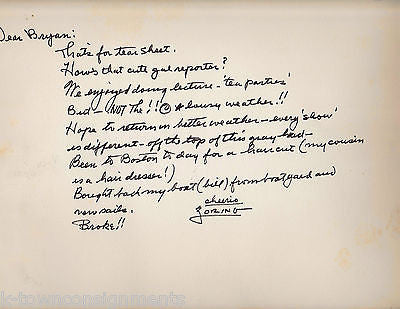 Dear Bryan:
That's for tear sheet.
Hows that cute gal reporter?
We enjoyed doing lecture - 'tea parties'
But - NOT The!!@* lousy weather!!
Hope to return in better weather - every 'show'
is different - off the top of this gray head -
Been to Boston to day for a haircut (my cousin
is a hair dresser!)
Bought back my boat (bill) from boatyard and
new sails.
Broke!!
cheerio
k-townconsignments